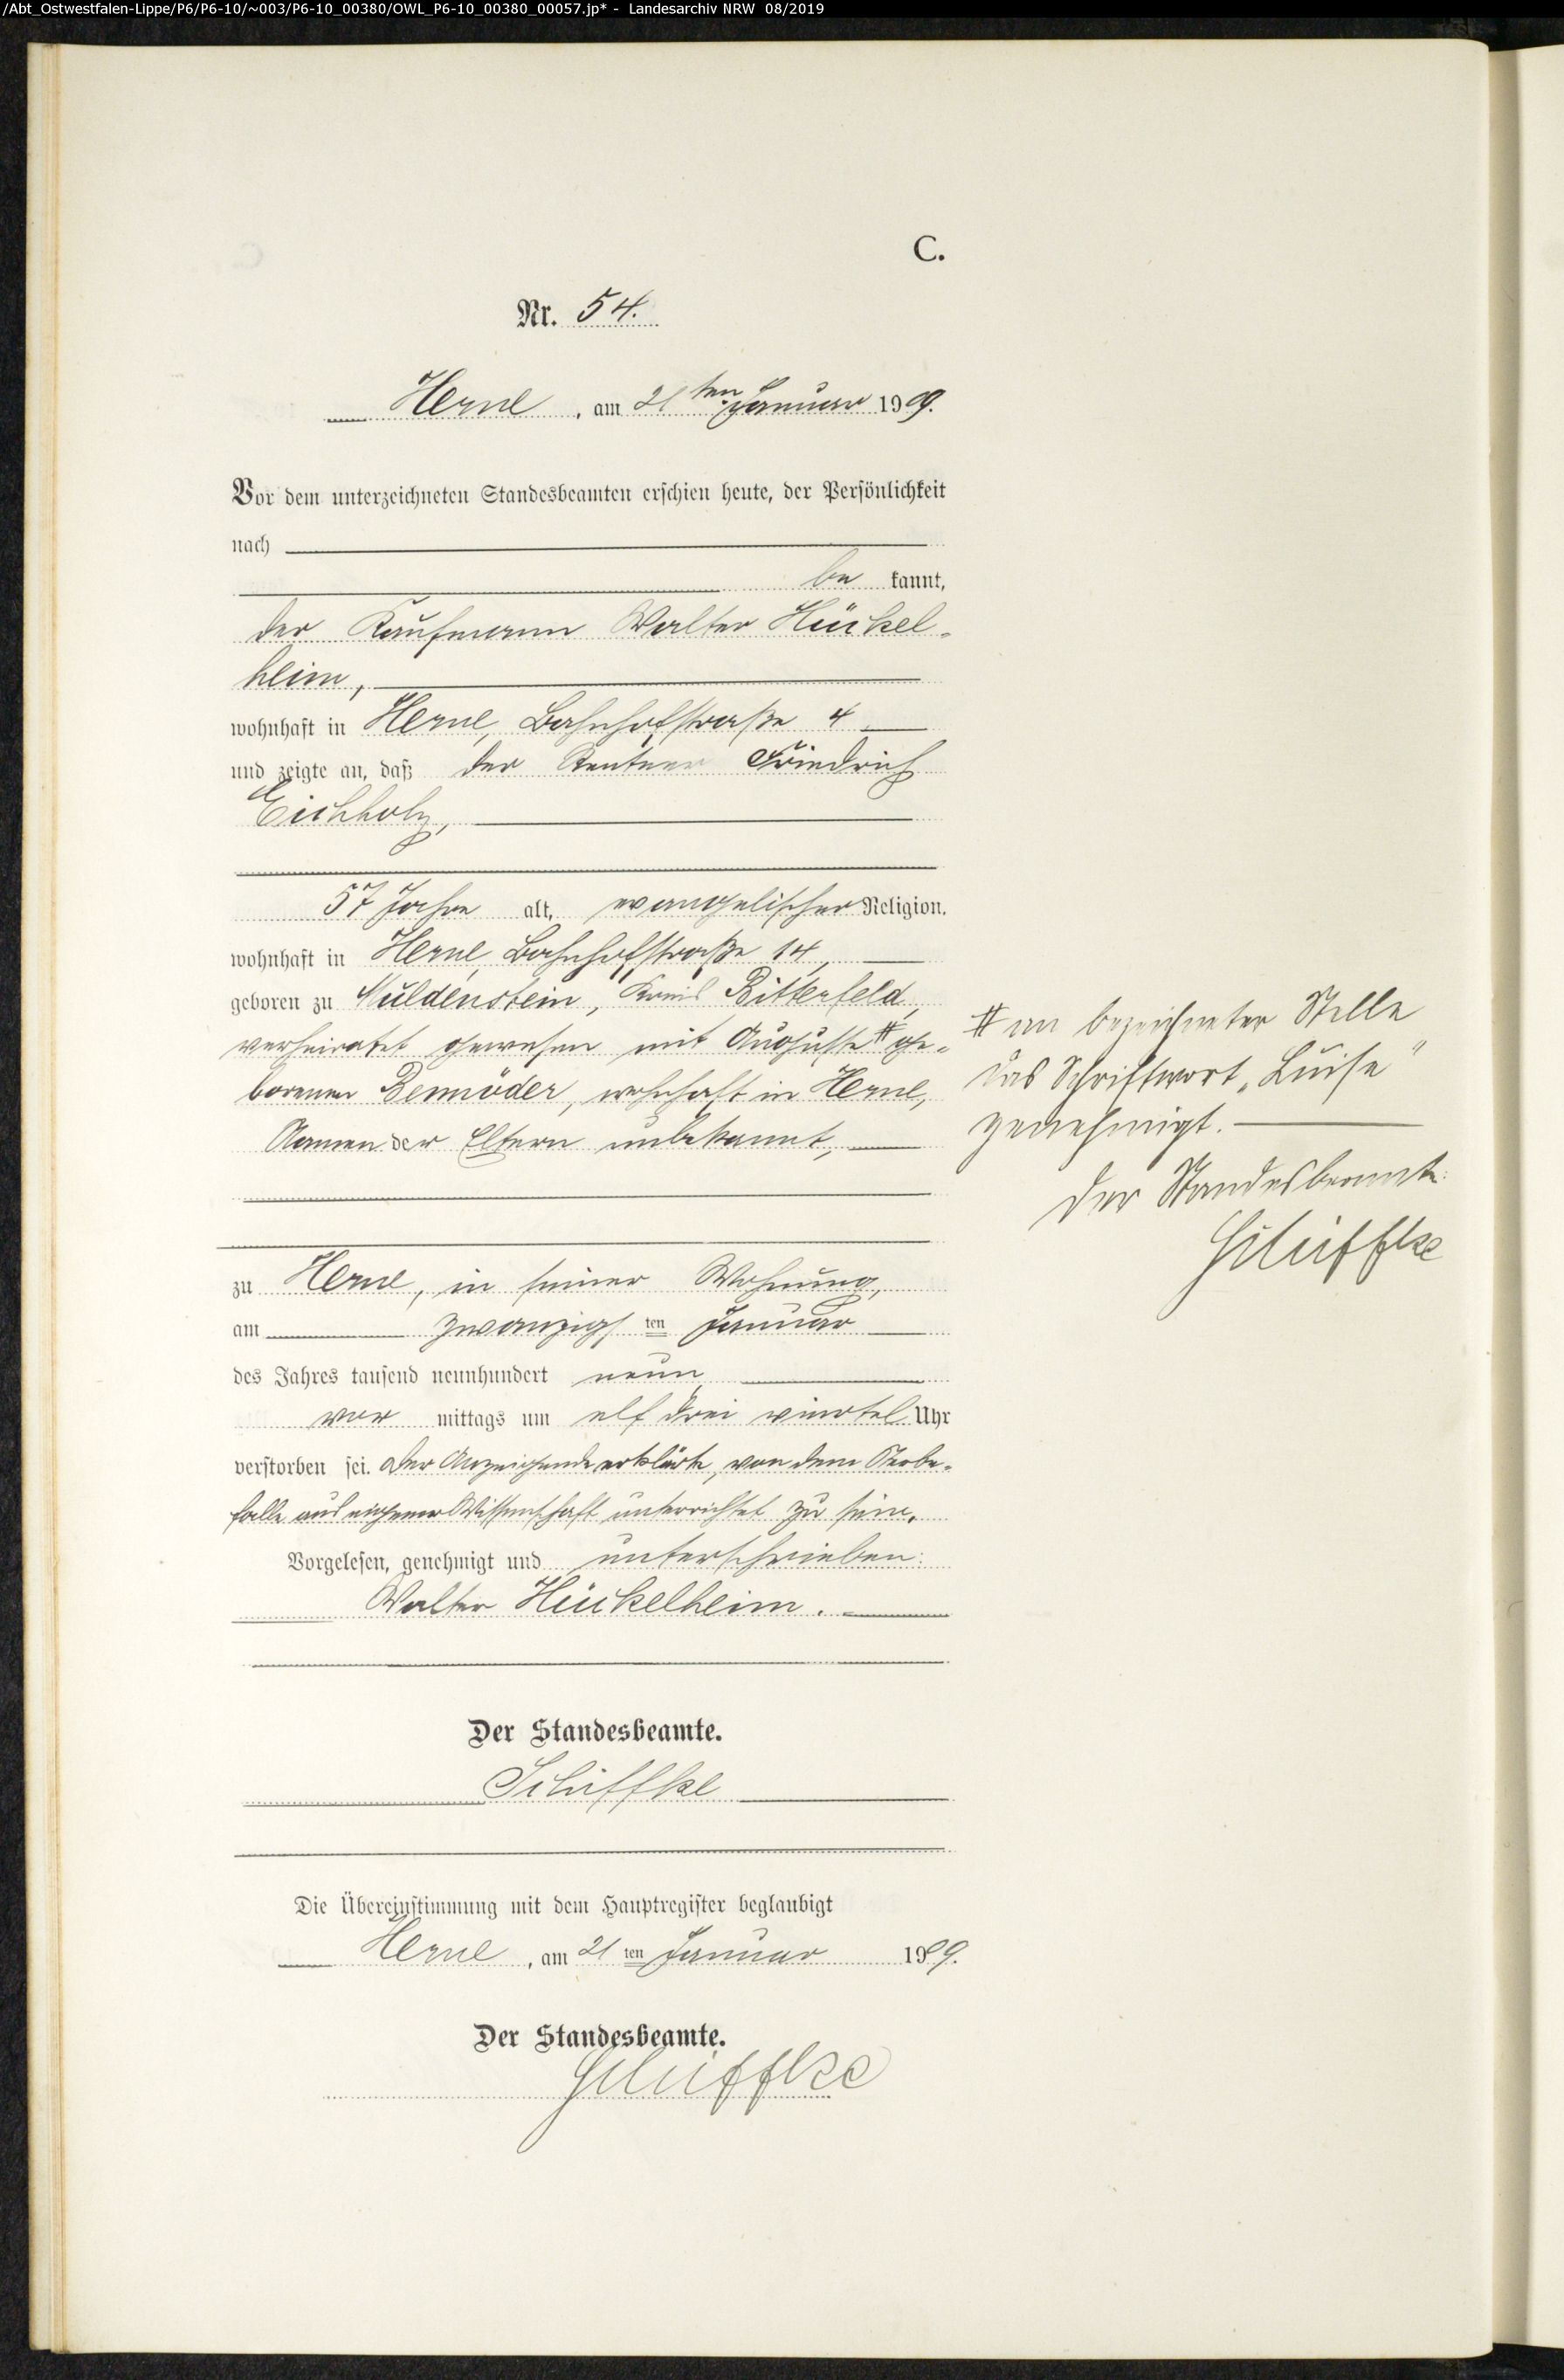 /Abt_Ostwestfalen-Lippe/P6/P6-10/~003/P6-10_00380/OWL_P6-10_00380_00057.jp* - Landesarchiv NRW 08/2019
C.
Nr. 54.
Herne, am 21ten Januar 1909.
Vor dem unterzeichneten Standesbeamten erschien heute, der Persönlichkeit
nach
be kannt,
der Kaufmann Walter Hückel-
heim,
wohnhaft in Herne, Bahnhofstraße 4
und zeigte an, daß der Rentner Friedrich
Eichholz,
57 Jahre alt, evangelischer Religion,
wohnhaft in Herne, Bahnhofstraße 14,
geboren zu Muldenstein, Kreis Bitterfeld,
verheiratet gewesen mit Auguste # ge-
borenen Bennöder, wohnhaft in Herne,
Namen der Eltern unbekannt,
# an bezeichneter Stelle
das Schriftwort „Luise"
genehmigt.
Der Standesbeamte:
Schüffke
zu Herne, in seiner Wohnung,
am zwanzigsten Januar
des Jahres tausend neunhundert neun
vor mittags um elf drei viertel Uhr
verstorben sei. Der Anzeigende erklärte, von dem Sterbe-
falle aus eigener Wissenschaft unterrichtet zu sein.
Vorgelesen, genehmigt und unterschrieben:
Walter Hückelheim.
Der Standesbeamte.
Schüffke
Die Übereinstimmung mit dem Hauptregister beglaubigt
Herne, am 21ten Januar 1909.
Der Standesbeamte.
Schüffke